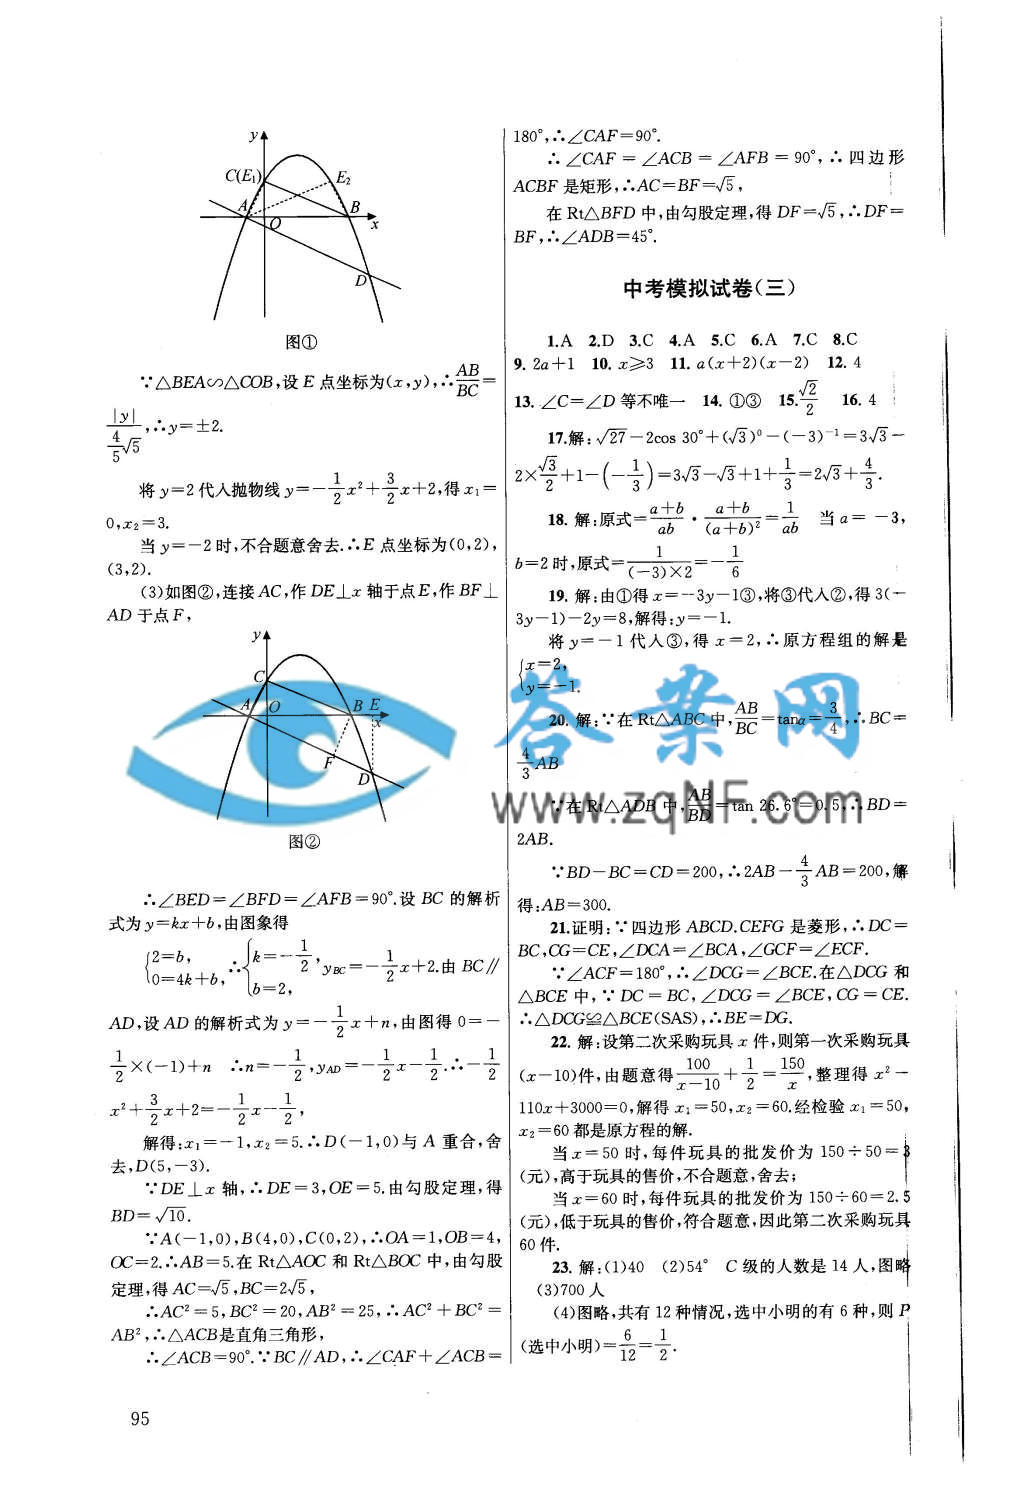 y
C(E₁)
E₂
A
O
B
x
D
图①
∵△BEA∽△COB,设 E 点坐标为(x,y),∴AB/BC=
|y|/(4/5√5),∴y=±2.
将 y=2 代入抛物线 y=-1/2x²+3/2x+2,得 x₁=
0,x₂=3.
当 y=-2 时,不合题意舍去.∴E 点坐标为(0,2),
(3,2).
(3)如图②,连接 AC,作 DE⊥x 轴于点 E,作 BF⊥
AD 于点 F,
y
C
A
O
B
E
x
F
D
图②
∴∠BED=∠BFD=∠AFB=90°.设 BC 的解析
式为 y=kx+b,由图象得
{2=b, 0=4k+b, ∴{k=-1/2, b=2, y_BC=-1/2x+2.由 BC∥
AD,设 AD 的解析式为 y=-1/2x+n,由图得 0=-
1/2×(-1)+n ∴n=-1/2,y_AD=-1/2x-1/2.∴-1/2
x²+3/2x+2=-1/2x-1/2,
解得:x₁=-1,x₂=5.∴D(-1,0)与 A 重合,舍
去,D(5,-3).
∵DE⊥x 轴,∴DE=3,OE=5.由勾股定理,得
BD=√10.
∵A(-1,0),B(4,0),C(0,2),∴OA=1,OB=4,
OC=2.∴AB=5.在 Rt△AOC 和 Rt△BOC 中,由勾股
定理,得 AC=√5,BC=2√5,
∴AC²=5,BC²=20,AB²=25,∴AC²+BC²=
AB²,∴△ACB是直角三角形,
∴∠ACB=90°.∵BC∥AD,∴∠CAF+∠ACB=
95
180°,∴∠CAF=90°.
∴∠CAF=∠ACB=∠AFB=90°,∴四边形
ACBF 是矩形,∴AC=BF=√5,
在 Rt△BFD 中,由勾股定理,得 DF=√5,∴DF=
BF,∴∠ADB=45°.
中考模拟试卷(三)
1.A 2.D 3.C 4.A 5.C 6.A 7.C 8.C
9. 2a+1 10. x⩾3 11. a(x+2)(x-2) 12. 4
13. ∠C=∠D 等不唯一 14. ①③ 15. √2/2 16. 4
17.解:√27-2cos 30°+(√3)⁰-(-3)⁻¹=3√3-
2×√3/2+1-(-1/3)=3√3-√3+1+1/3=2√3+4/3.
18. 解:原式=(a+b)/ab·(a+b)/(a+b)²=1/ab 当 a=-3,
b=2 时,原式=1/((-3)×2)=-1/6
19. 解:由①得 x=-3y-1③,将③代入②,得 3(-
3y-1)-2y=8,解得:y=-1.
将 y=-1 代入③,得 x=2,∴原方程组的解是
{x=2,
y=-1.
20. 解:∵在 Rt△ABC 中,AB/BC=tanα=3/4,∴BC=
4/3AB
∵在 Rt△ADB 中,AB/BD=tan 26.6°=0.5,∴BD=
2AB.
∵BD-BC=CD=200,∴2AB-4/3AB=200,解
得:AB=300.
21.证明:∵四边形 ABCD.CEFG 是菱形,∴DC=
BC,CG=CE,∠DCA=∠BCA,∠GCF=∠ECF.
∵∠ACF=180°,∴∠DCG=∠BCE.在△DCG 和
△BCE 中,∵DC=BC,∠DCG=∠BCE,CG=CE.
∴△DCG≌△BCE(SAS),∴BE=DG.
22. 解:设第二次采购玩具 x 件,则第一次采购玩具
(x-10)件,由题意得100/(x-10)+1/2=150/x,整理得 x²-
110x+3000=0,解得 x₁=50,x₂=60.经检验 x₁=50,
x₂=60 都是原方程的解.
当 x=50 时,每件玩具的批发价为 150÷50=3
(元),高于玩具的售价,不合题意,舍去;
当 x=60 时,每件玩具的批发价为 150÷60=2.5
(元),低于玩具的售价,符合题意,因此第二次采购玩具
60 件.
23. 解:(1)40 (2)54° C 级的人数是 14 人,图略
(3)700 人
(4)图略,共有 12 种情况,选中小明的有 6 种,则 P
(选中小明)=6/12=1/2.
答案网
www.zqNF.com